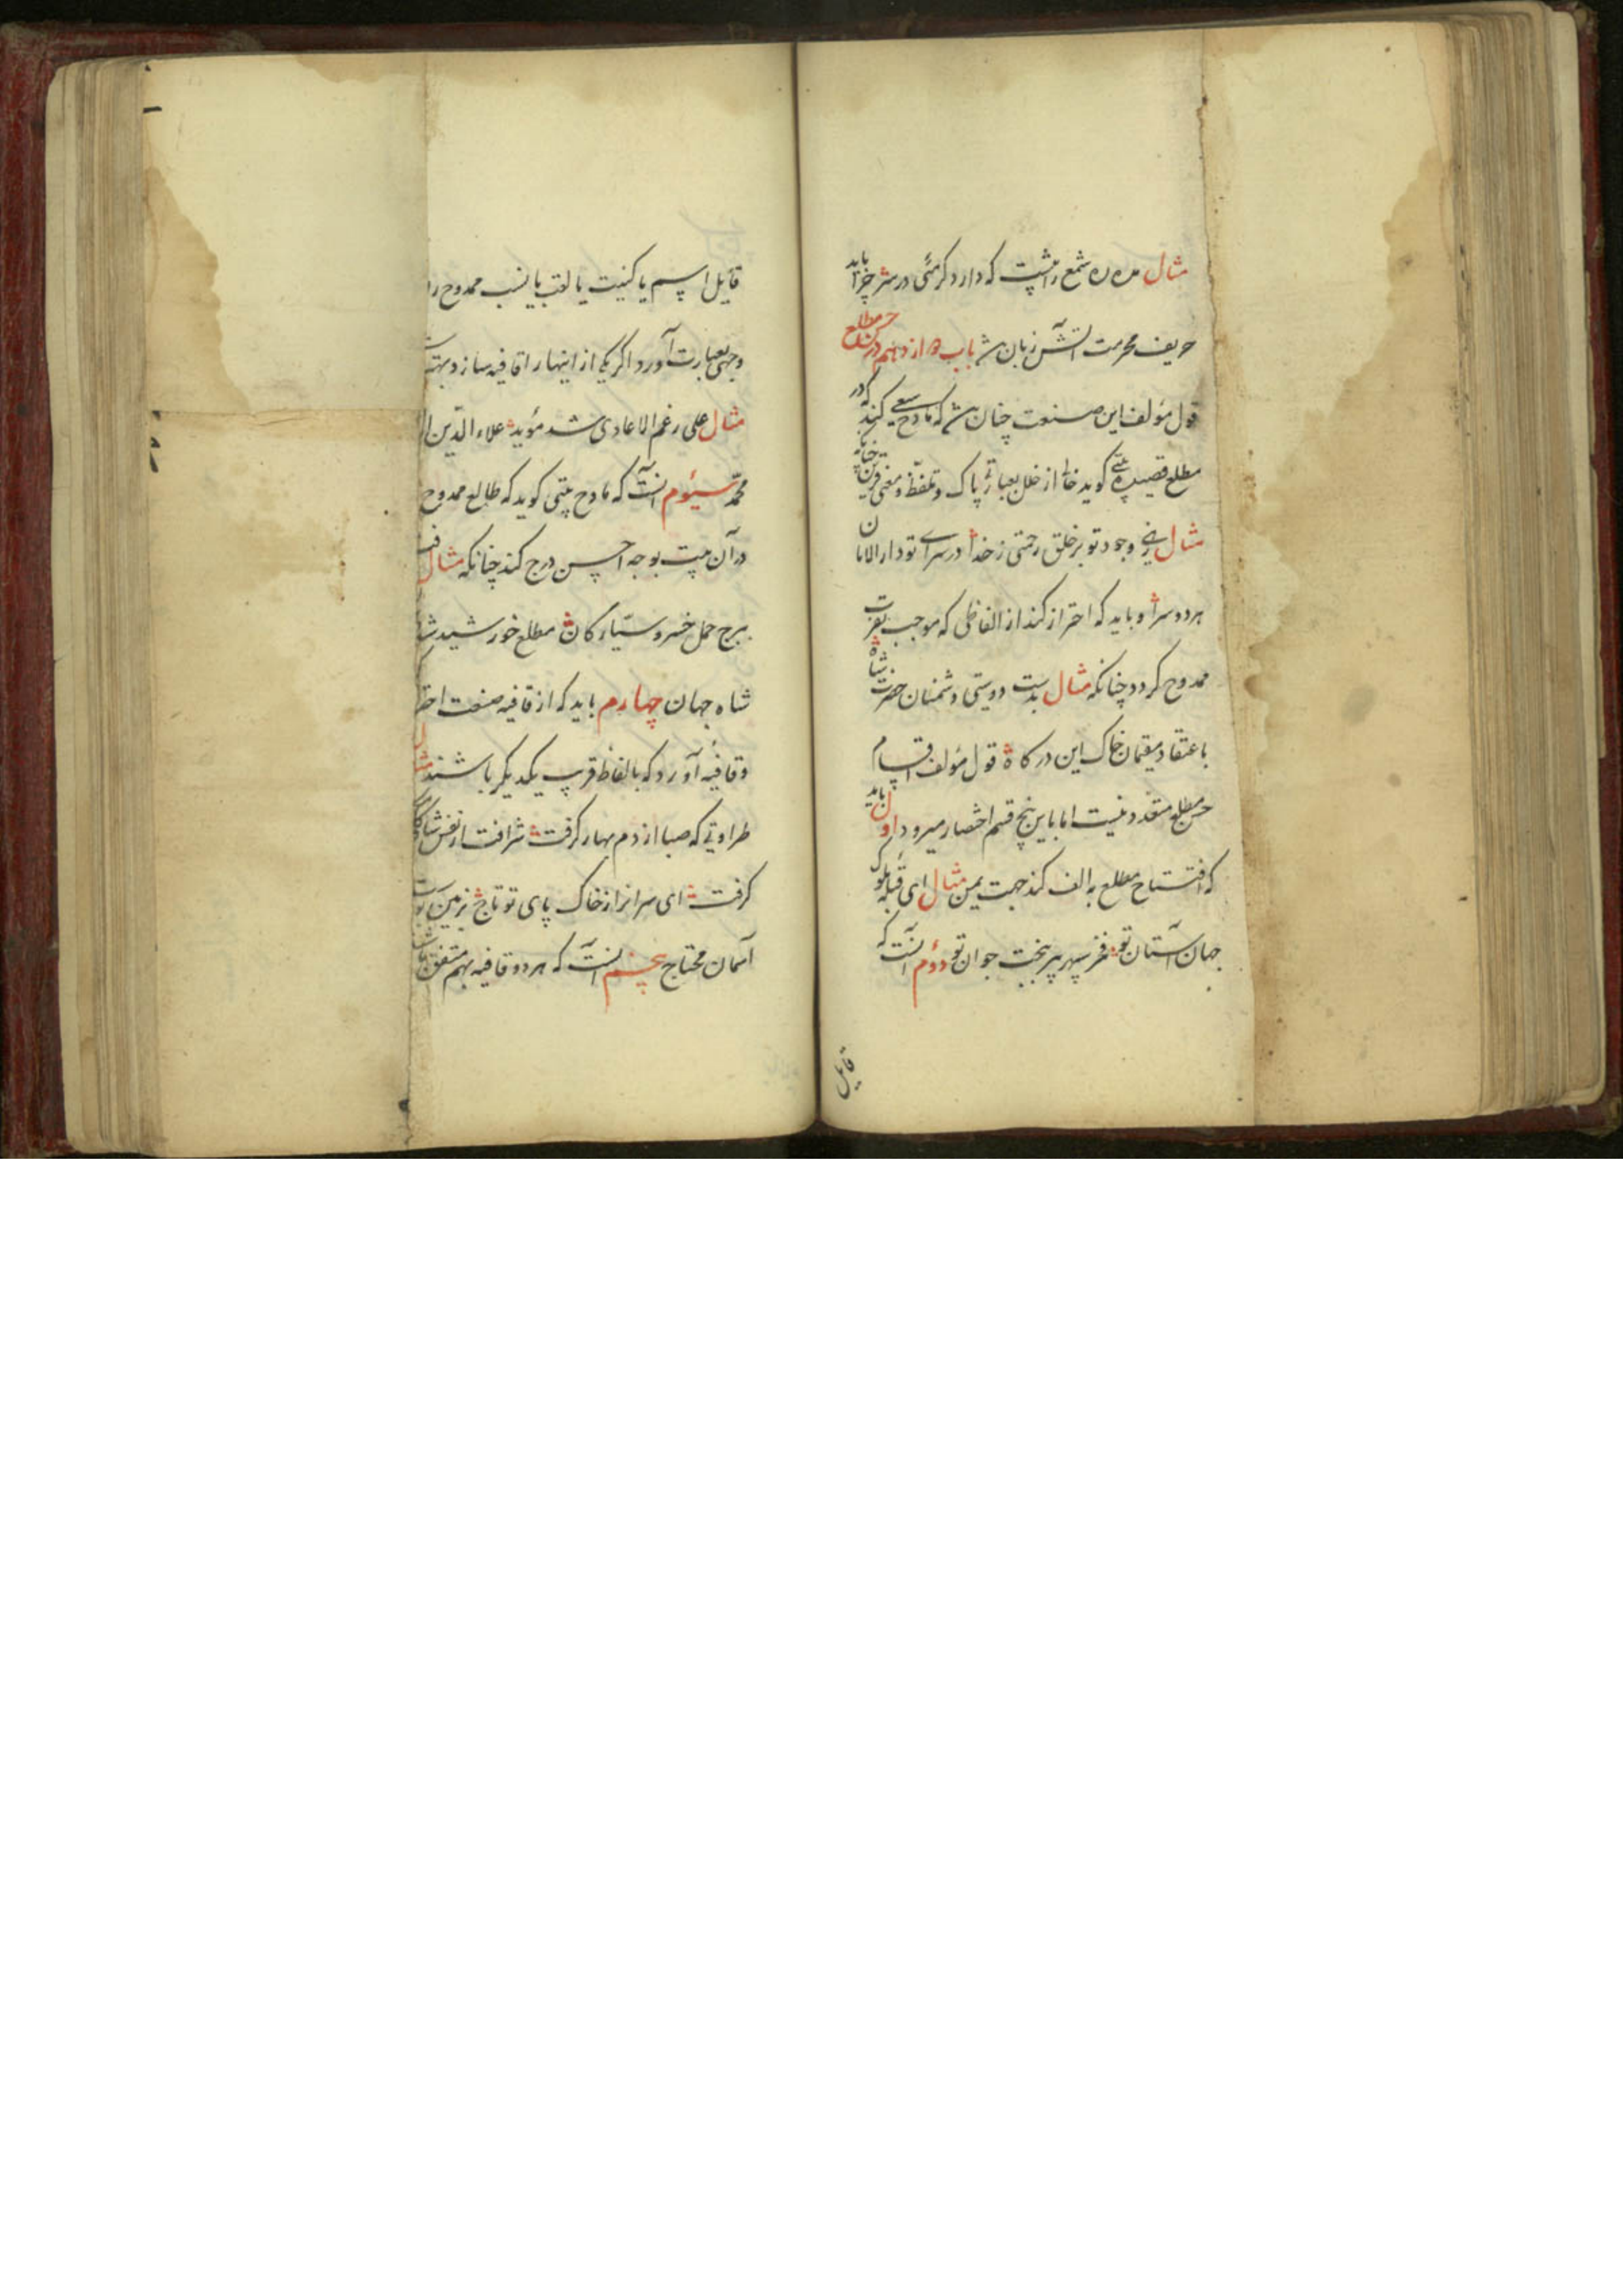 مثال مده شمع را مشب که دارد گرمئی در سر چرا باید
حریف محرمست آتش زبان باب دوازدهم در حسن مطلع
قول مؤلف این صنعت چنان که مادح سعی کند که در
مطلع قصیده بیتی گوید خالی از خلل بعبارتی پاک و تلفظ و معنی قرین چنانکه
مثال زهی وجود تو بر خلق رحمتی ز خدا در سرای تو دارالامان
هر دو سرا و باید که احتراز کند از الفاظی که موجب نفرت
ممدوح گردد چنانکه مثال بدست دوستی دشمنان حضرت شاه
باعتقاد مقیمان خاک این درگاه قول مؤلف اقسام
حسن مطلع متعدد نیست اما باین پنج قسم اختصار میرود اول باید
که افتتاح مطلع به الف کند جهت یمن مثال ای قبله ملوک
جهان آستان تو فخر سپهر پیر ببخت جوان تو دؤم آنست که
قایل
قایل اسم یا کنیت یا لقب یا نسب ممدوح را
وجهی بعبارت آورد اگر یکی از اینها را قافیه سازد بهتر
مثال علی رغم الاعادی شد مؤید علاء الدین
محمد سیؤم آنست که مادح بیتی گوید که طالع ممدوح
در آن بیت بوجه احسن درج کند چنانکه مثال
ببرج حمل خسرو سیارگان مطلع خورشید
شاه جهان چهارم باید که از قافیه صنعت
و قافیه آورد که بالفاظ قریب یکدیگر باشند
طراوتی که صبا از دم بهار گرفت شرافت از نفس
گرفت ای سرانرا از خاک پای تو تاج زمین
آسمان محتاج پنجم آنست که هر دو قافیه بهم متفق